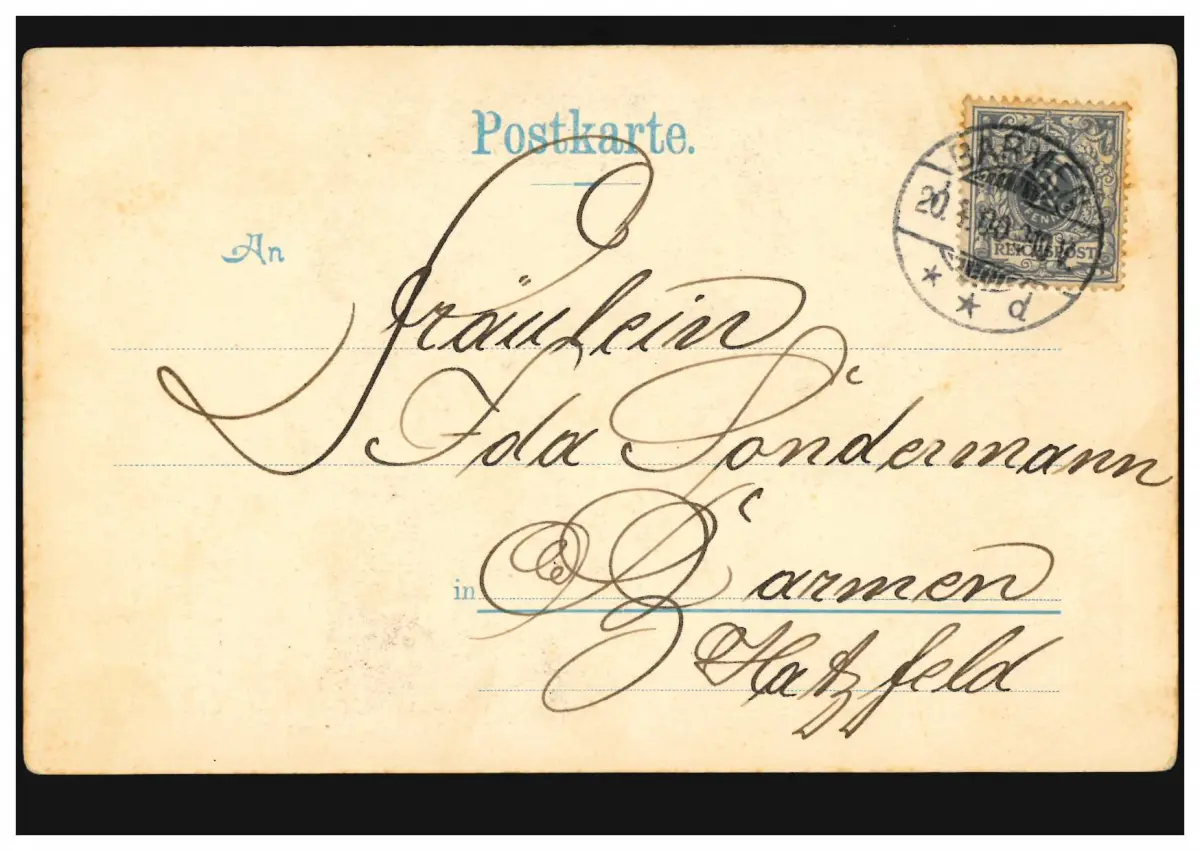 Postkarte.
BARMEN
REICHSPOST
An
d
Fräulein
Ida Sondermann
in Barmen
Hatzfeld